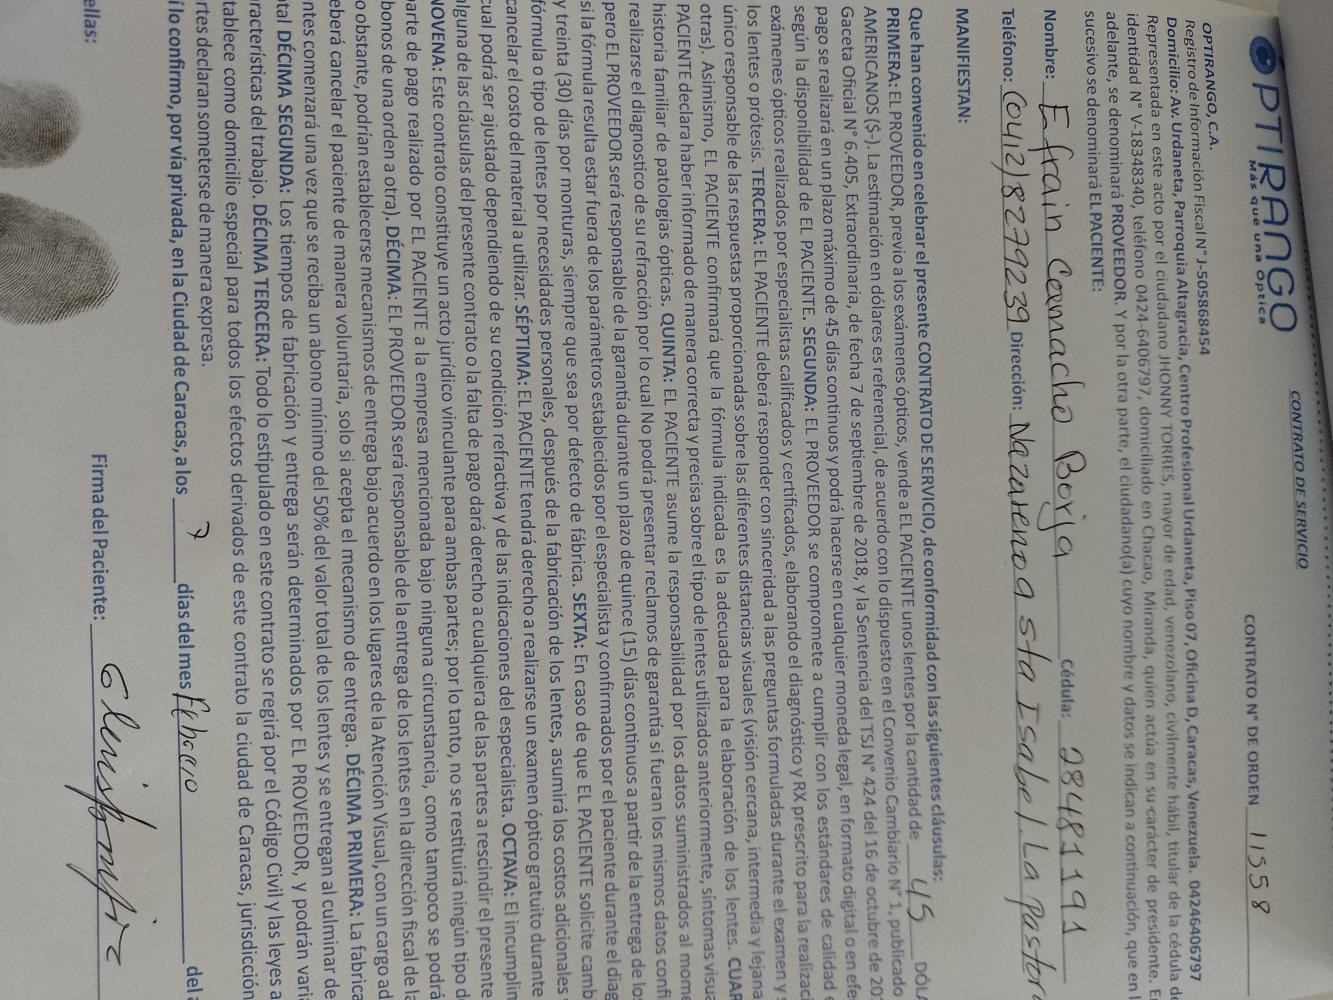 OPTIRANGO
Más que una Óptica
CONTRATO DE SERVICIO
CONTRATO N° DE ORDEN 11558
OPTIRANGO, C.A.
Registro de Información Fiscal N° J-505868454
Domicilio: Av. Urdaneta, Parroquia Altagracia, Centro Profesional Urdaneta, Piso 07, Oficina D, Caracas, Venezuela. 04246406797
Representada en este acto por el ciudadano JHONNY TORRES, mayor de edad, venezolano, civilmente hábil, titular de la cédula de
identidad N° V-18348340, teléfono 0424-6406797, domiciliado en Chacao, Miranda, quien actúa en su carácter de presidente. E
adelante, se denominará PROVEEDOR. Y por la otra parte, el ciudadano(a) cuyo nombre y datos se indican a continuación, que en l
sucesivo se denominará EL PACIENTE:
Nombre: Efrain Camacho Borja Cédula: 28481191
Teléfono: (0412) 8279239 Dirección: Nazareno a sta Isabel La pastora
MANIFIESTAN:
Que han convenido en celebrar el presente CONTRATO DE SERVICIO, de conformidad con las siguientes cláusulas:
PRIMERA: EL PROVEEDOR, previo a los exámenes ópticos, vende a EL PACIENTE unos lentes por la cantidad de 45 DÓLA
AMERICANOS ($-). La estimación en dólares es referencial, de acuerdo con lo dispuesto en el Convenio Cambiario N° 1, publicado
Gaceta Oficial N° 6.405, Extraordinaria, de fecha 7 de septiembre de 2018, y la Sentencia del TSJ N° 424 del 16 de octubre de 20
pago se realizará en un plazo máximo de 45 días continuos y podrá hacerse en cualquier moneda legal, en formato digital o en efe
según la disponibilidad de EL PACIENTE. SEGUNDA: EL PROVEEDOR se compromete a cumplir con los estándares de calidad e
exámenes ópticos realizados por especialistas calificados y certificados, elaborando el diagnóstico y RX prescrito para la realizaci
los lentes o prótesis. TERCERA: EL PACIENTE deberá responder con sinceridad a las preguntas formuladas durante el examen y s
único responsable de las respuestas proporcionadas sobre las diferentes distancias visuales (visión cercana, intermedia y lejana
otras). Asimismo, EL PACIENTE confirmará que la fórmula indicada es la adecuada para la elaboración de los lentes. CUAR
PACIENTE declara haber informado de manera correcta y precisa sobre el tipo de lentes utilizados anteriormente, síntomas visua
historia familiar de patologías ópticas. QUINTA: EL PACIENTE asume la responsabilidad por los datos suministrados al mome
realizarse el diagnostico de su refracción por lo cual No podrá presentar reclamos de garantía si fueran los mismos datos confi
pero EL PROVEEDOR será responsable de la garantía durante un plazo de quince (15) días continuos a partir de la entrega de lo
si la fórmula resulta estar fuera de los parámetros establecidos por el especialista y confirmados por el paciente durante el diag
y treinta (30) días por monturas, siempre que sea por defecto de fábrica. SEXTA: En caso de que EL PACIENTE solicite camb
fórmula o tipo de lentes por necesidades personales, después de la fabricación de los lentes, asumirá los costos adicionales
cancelar el costo del material a utilizar. SÉPTIMA: EL PACIENTE tendrá derecho a realizarse un examen óptico gratuito durante
cual podrá ser ajustado dependiendo de su condición refractiva y de las indicaciones del especialista. OCTAVA: El incumplim
alguna de las cláusulas del presente contrato o la falta de pago dará derecho a cualquiera de las partes a rescindir el presente
NOVENA: Este contrato constituye un acto jurídico vinculante para ambas partes; por lo tanto, no se restituirá ningún tipo d
parte de pago realizado por EL PACIENTE a la empresa mencionada bajo ninguna circunstancia, como tampoco se podrá
bonos de una orden a otra). DÉCIMA: EL PROVEEDOR será responsable de la entrega de los lentes en la dirección fiscal de la
obstante, podrían establecerse mecanismos de entrega bajo acuerdo en los lugares de la Atención Visual, con un cargo ad
eberá cancelar el paciente de manera voluntaria, solo si acepta el mecanismo de entrega. DÉCIMA PRIMERA: La fabrica
ntes comenzará una vez que se reciba un abono mínimo del 50% del valor total de los lentes y se entregan al culminar de
tal DÉCIMA SEGUNDA: Los tiempos de fabricación y entrega serán determinados por EL PROVEEDOR, y podrán varia
racterísticas del trabajo. DÉCIMA TERCERA: Todo lo estipulado en este contrato se regirá por el Código Civil y las leyes a
tablece como domicilio especial para todos los efectos derivados de este contrato la ciudad de Caracas, jurisdicción
rtes declaran someterse de manera expresa.
ílo confirmo, por vía privada, en la Ciudad de Caracas, a los 7 días del mes Febrero del a
ellas:
Firma del Paciente: